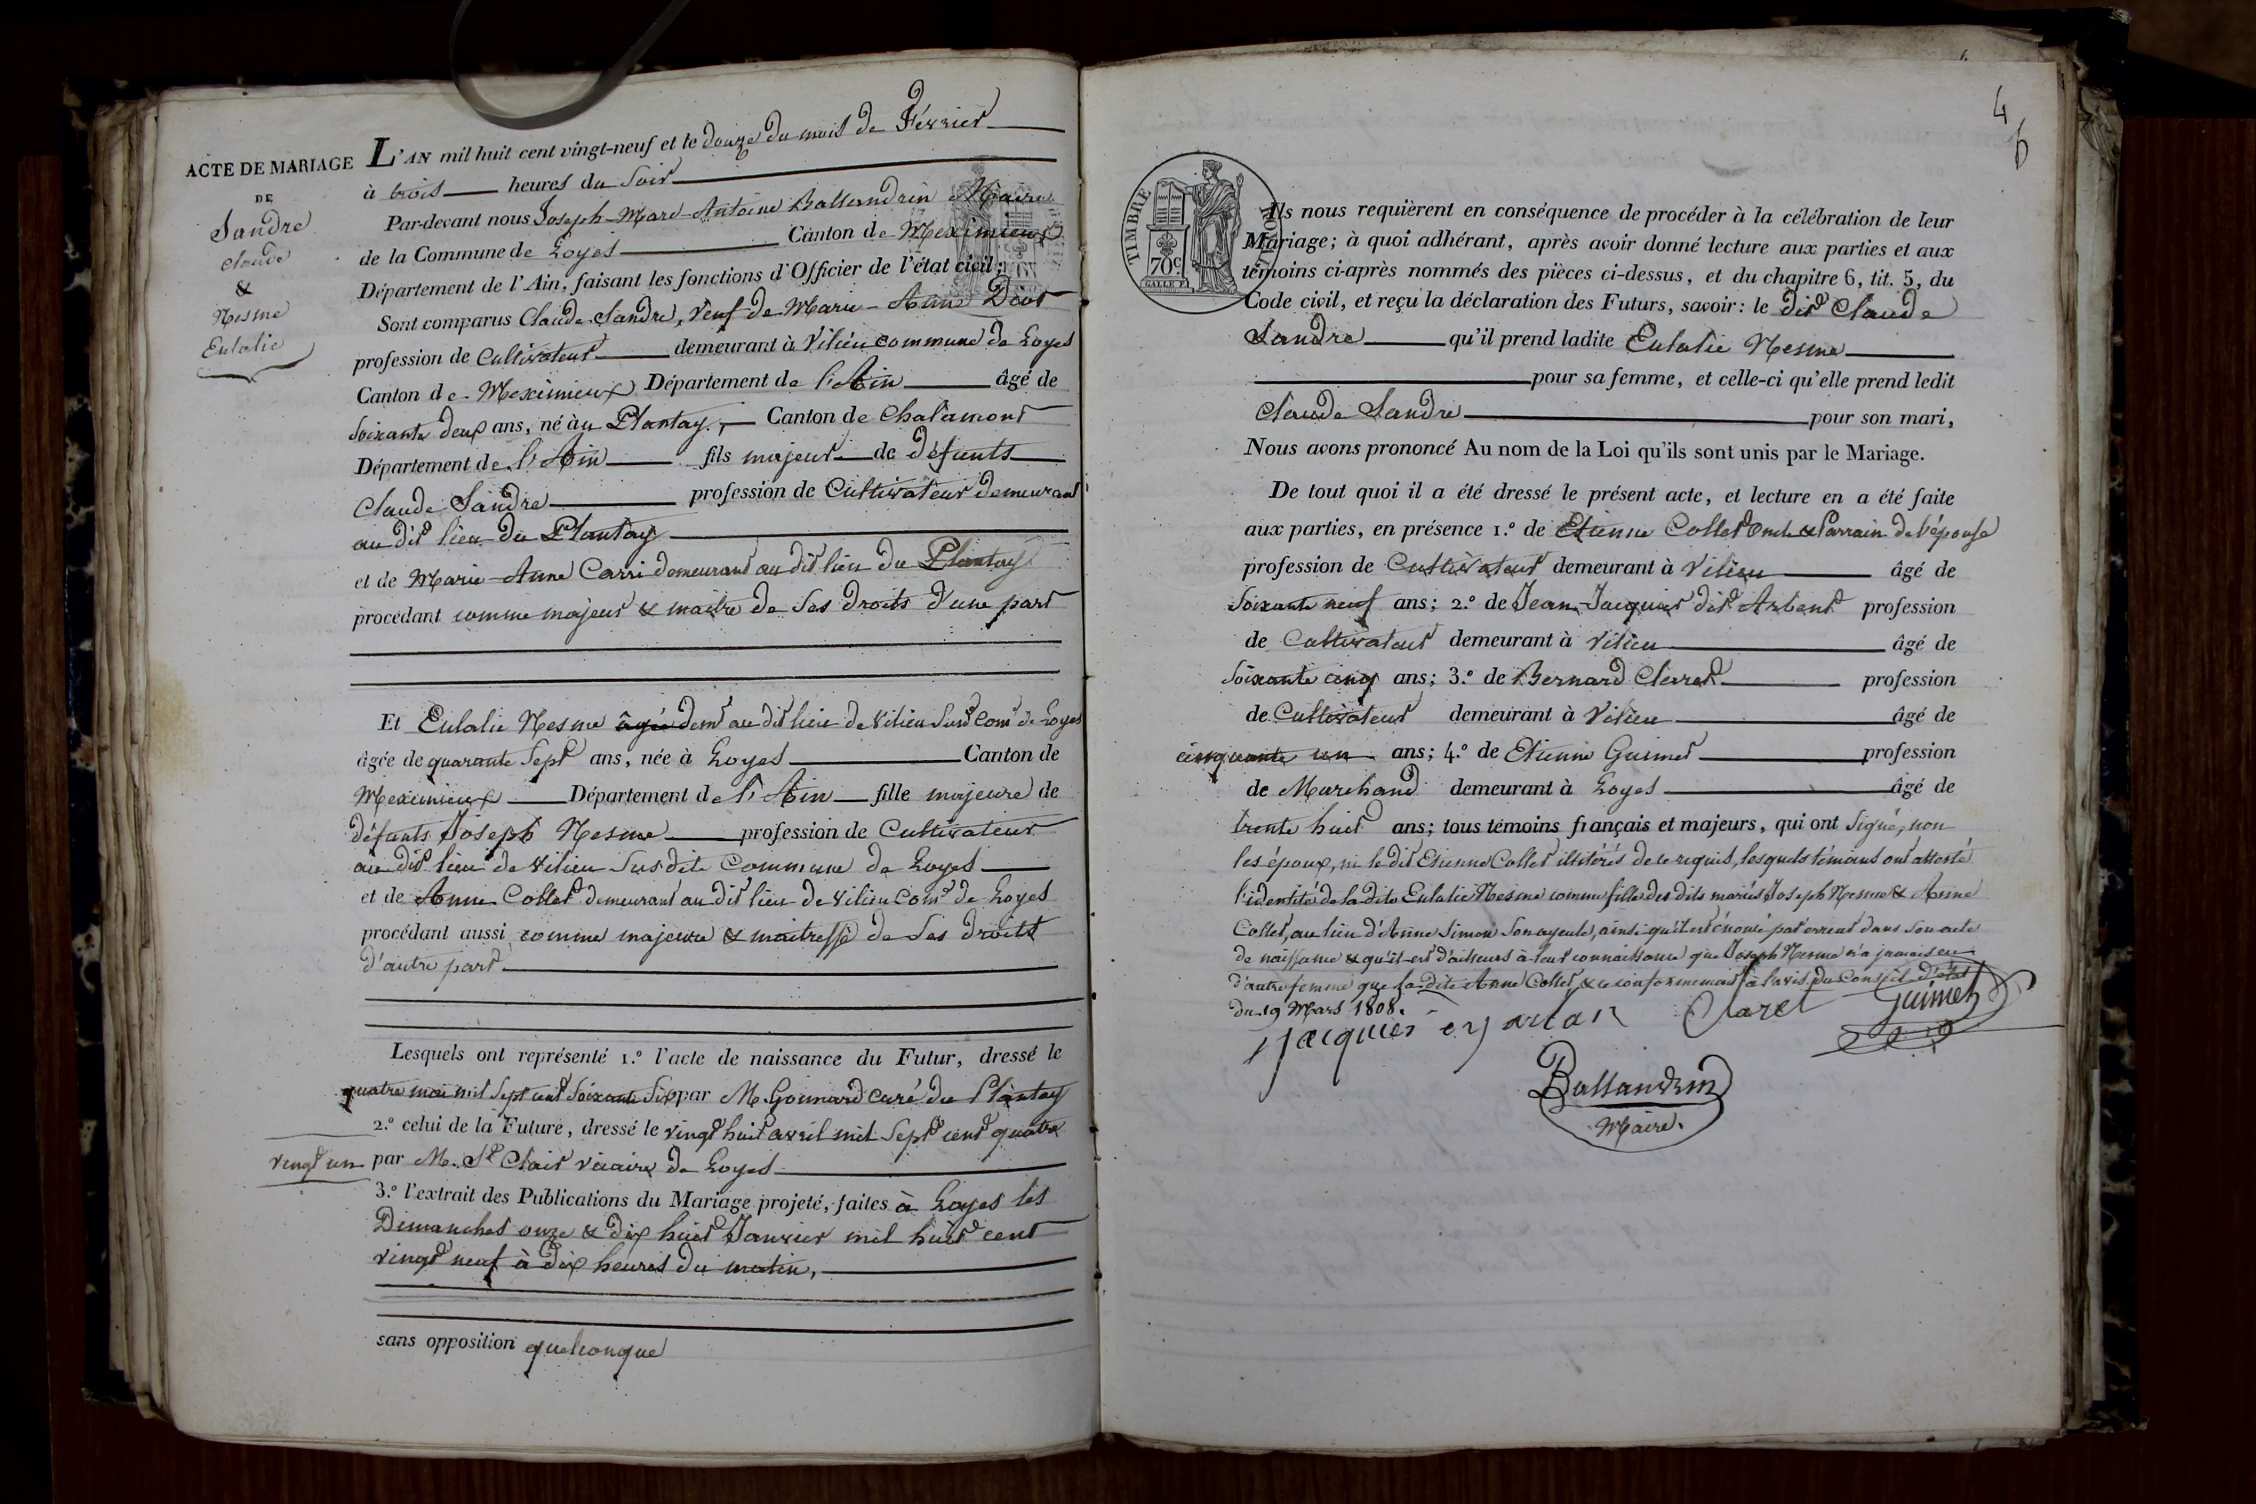 ACTE DE MARIAGE
DE
Sandre
Claude
&
Nesme
Eulalie
L'AN mil huit cent vingt-neuf et le douze du mois de Février
à trois heures du Soir
Par-devant nous Joseph-Marc-Antoine Ballandrin Maire
de la Commune de Loyes Canton de Meximieux
Département de l'Ain, faisant les fonctions d'Officier de l'état civil;
Sont comparus Claude Sandre, Veuf de Marie-Anne
profession de Cultivateur demeurant à Vilieu commune de Loyes
Canton de Meximieux Département de l'Ain âgé de
Soixante deux ans, né au Plantay, Canton de Chalamont
Département de l'Ain fils majeur de défunts
Claude Sandre profession de Cultivateur demeurant
au dit lieu du Plantay
et de Marie-Anne Carri demeurant au dit lieu du Plantay
procédant comme majeur & maitre de Ses droits d'une part
Et Eulalie Nesme âgée demt au dit lieu de Vilieu Susd Come de Loyes
âgée de quarante Sept ans, née à Loyes Canton de
Meximieux Département de l'Ain fille majeure de
défunts Joseph Nesme profession de Cultivateur
au dit lieu de Vilieu Susdite Commune de Loyes
et de Anne Collet demeurant au dit lieu de Vilieu Come de Loyes
procédant aussi comme majeure & maitresse de Ses droits
d'autre part
Lesquels ont représenté 1.º l'acte de naissance du Futur, dressé le
quatre mai mil Sept cent Soixante Six par M. Gonnard curé du Plantay
2.º celui de la Future, dressé le vingt huit avril mil Sept cent quatre
vingt un par M. St Clair vicaire de Loyes
3.º l'extrait des Publications du Mariage projeté, faites à Loyes les
Dimanches onze & dix huit Janvier mil huit cent
vingt neuf à dix heures du matin,
sans opposition quelconque
4
TIMBRE
70c
Ils nous requièrent en conséquence de procéder à la célébration de leur
Mariage; à quoi adhérant, après avoir donné lecture aux parties et aux
témoins ci-après nommés des pièces ci-dessus, et du chapitre 6, tit. 5, du
Code civil, et reçu la déclaration des Futurs, savoir: le dit Claude
Sandre qu'il prend ladite Eulalie Nesme
pour sa femme, et celle-ci qu'elle prend ledit
Claude Sandre pour son mari,
Nous avons prononcé Au nom de la Loi qu'ils sont unis par le Mariage.
De tout quoi il a été dressé le présent acte, et lecture en a été faite
aux parties, en présence 1.º de Etienne Collet Oncle & Parrain de l'épouse
profession de Cultivateur demeurant à Vilieu âgé de
Soixante neuf ans; 2.º de Jean Jacquier dit Arbent profession
de Cultivateur demeurant à Vilieu âgé de
Soixante cinq ans; 3.º de Bernard Claret profession
de Cultivateur demeurant à Vilieu âgé de
cinquante un ans; 4.º de Etienne Guimet profession
de Marchand demeurant à Loyes âgé de
trente huit ans; tous témoins français et majeurs, qui ont Signé, non
les époux, ni le dit Etienne Collet illitérés de ce requis, lesquels témoins ont attesté
l'identité de la dite Eulalie Nesme comme fille des dits mariés Joseph Nesme & Anne
Collet, au lieu d'Anne Simon Son ayeule, ainsi qu'il est énoncé par erreur dans Son acte
de naissance & qu'il est d'ailleurs à leur connaissance que Joseph Nesme n'a jamais eu
d'autre femme que la dite Anne Collet, & ce conformément à l'avis du Conseil d'état
du 19 Mars 1808.
jacquier Claret Guimet
Ballandrin
Maire.